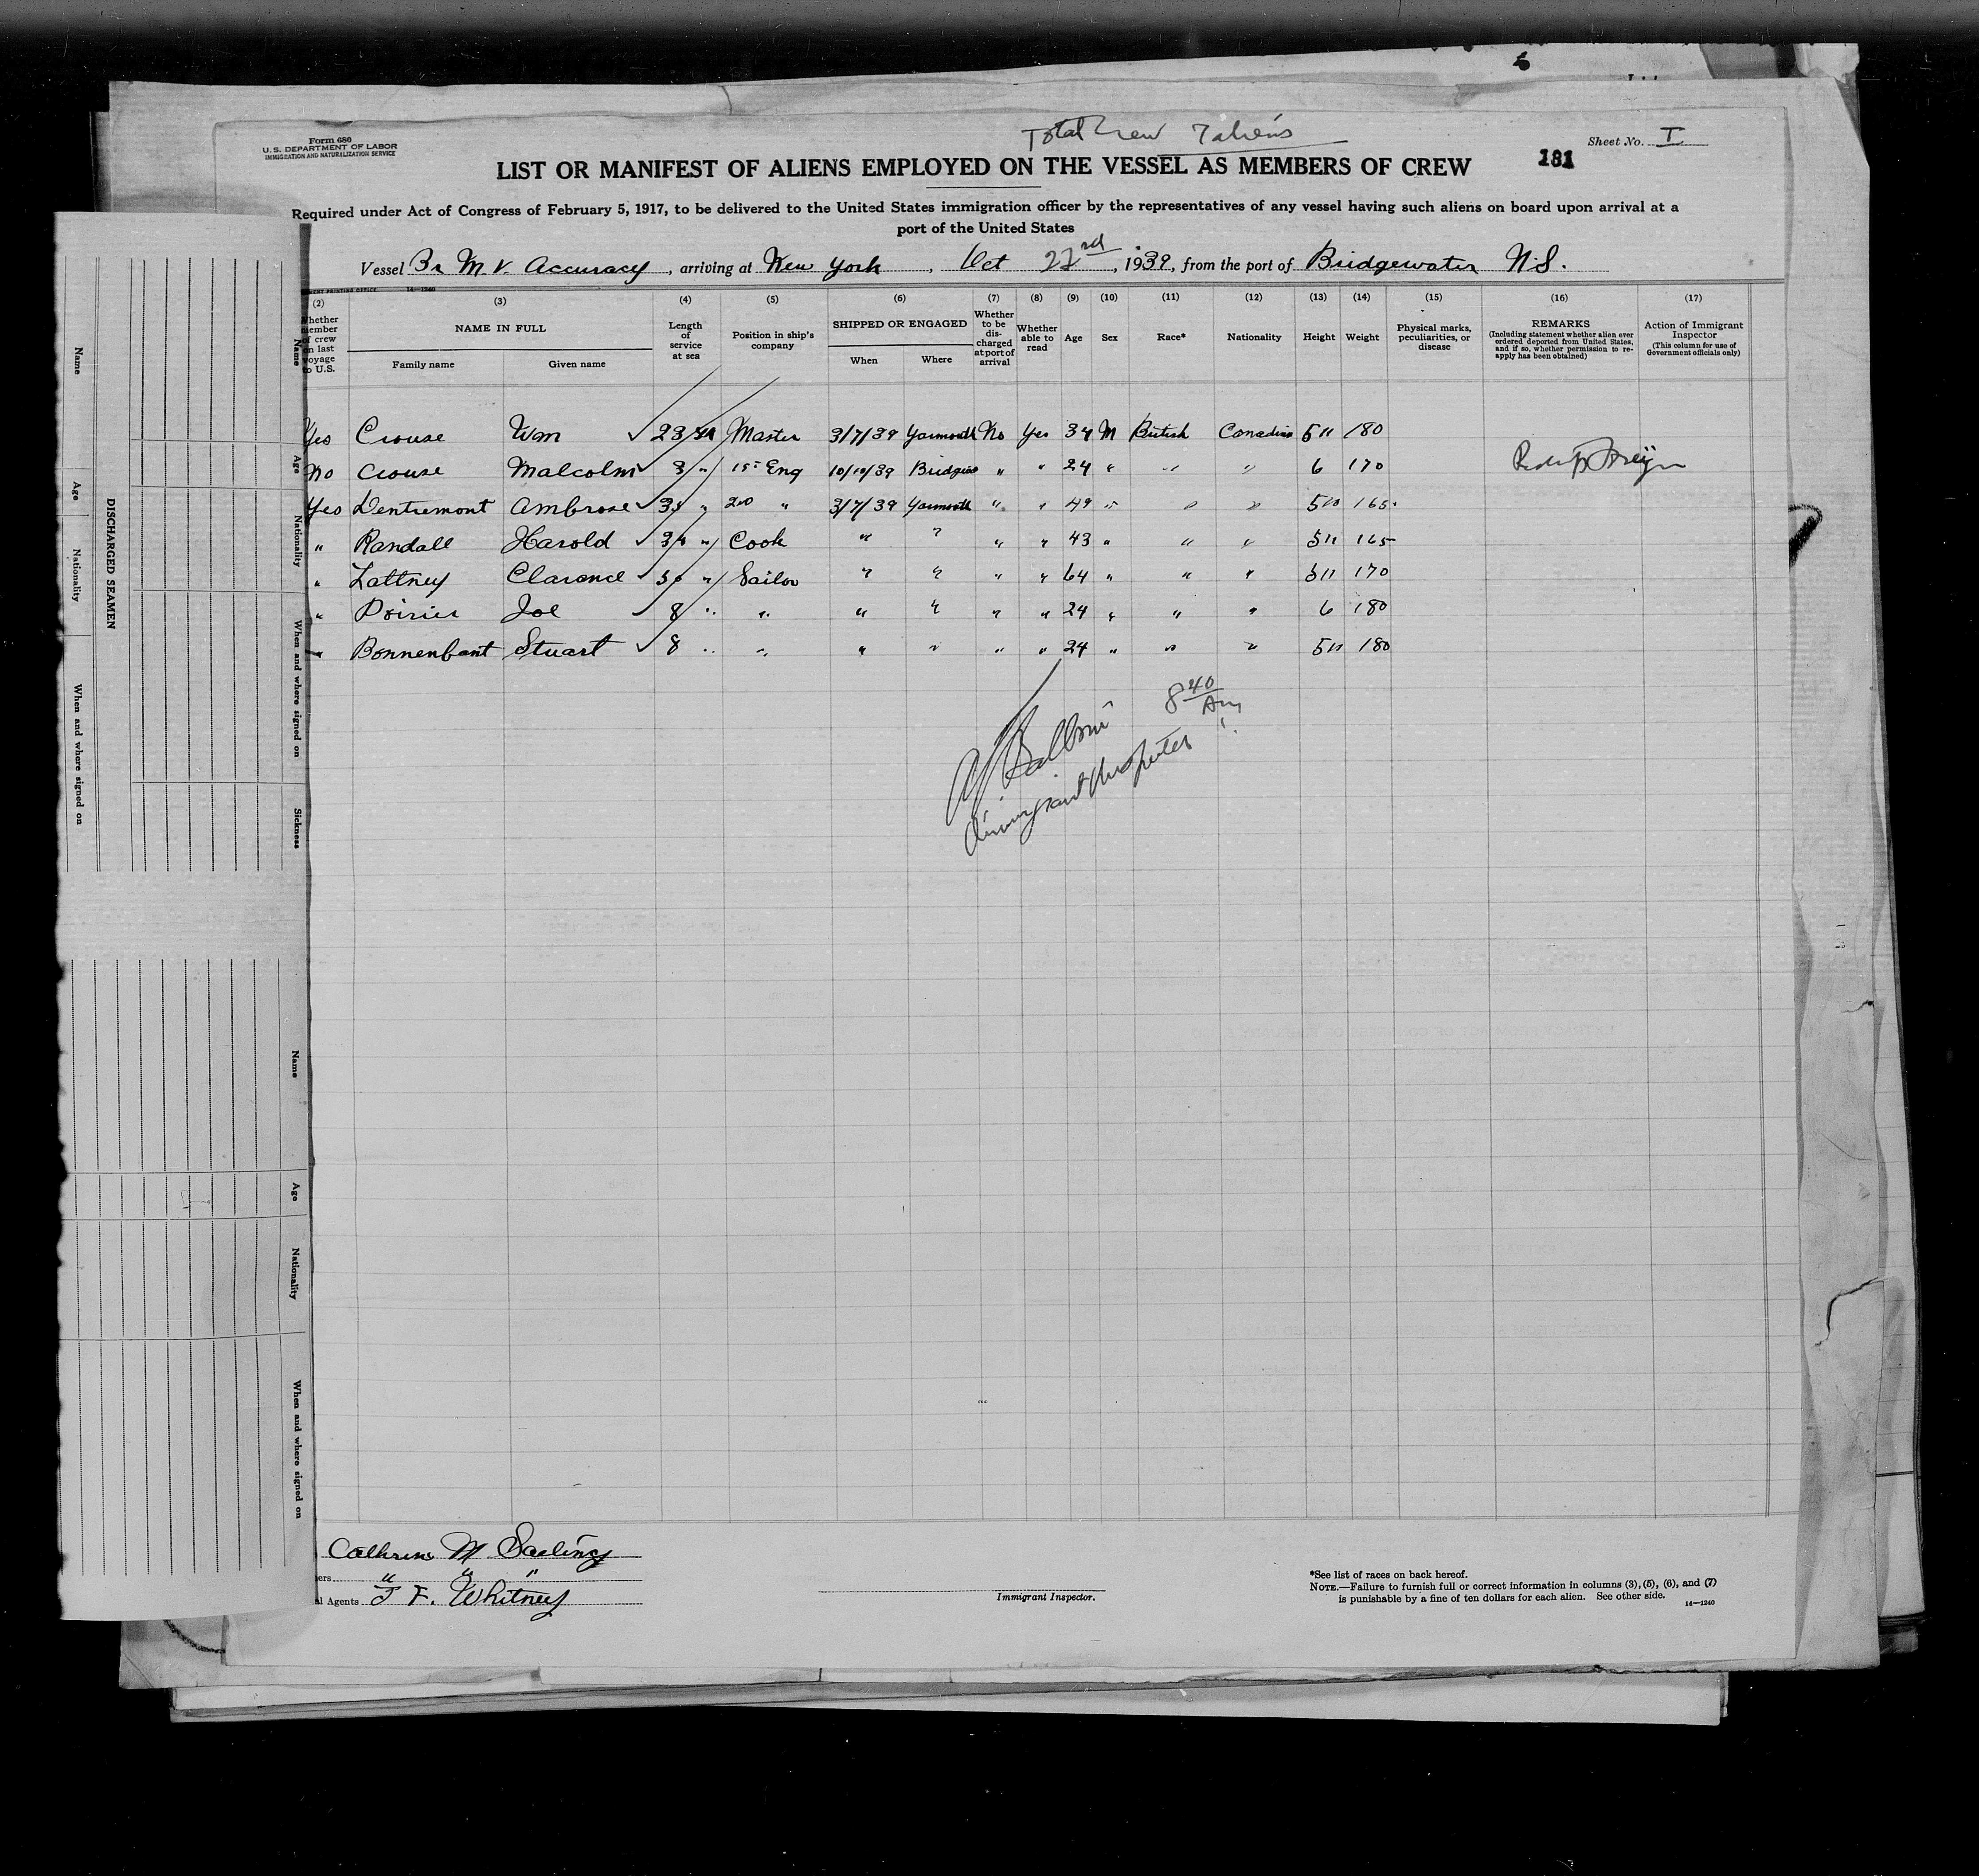 Total Crew 7 aliens
Form 680
U. S. DEPARTMENT OF LABOR
IMMIGRATION AND NATURALIZATION SERVICE
Sheet No. I
181
LIST OR MANIFEST OF ALIENS EMPLOYED ON THE VESSEL AS MEMBERS OF CREW
Required under Act of Congress of February 5, 1917, to be delivered to the United States immigration officer by the representatives of any vessel having such aliens on board upon arrival at a
port of the United States
Vessel Br M V. Accuracy, arriving at New York, Oct 23rd, 1939, from the port of Bridgewater N.S.
14—1240
(2) (3) (4) (5) (6) (7) (8) (9) (10) (11) (12) (13) (14) (15) (16) (17)
Whether member of crew on last voyage to U.S.
NAME IN FULL
Family name Given name
Length of service at sea
Position in ship's company
SHIPPED OR ENGAGED
When Where
Whether to be discharged at port of arrival
Whether able to read
Age
Sex
Race*
Nationality
Height
Weight
Physical marks, peculiarities, or disease
REMARKS
(Including statement whether alien ever ordered deported from United States, and if so, whether permission to re-apply has been obtained)
Action of Immigrant Inspector
(This column for use of Government officials only)
Yes Crouse Wm 23 Master 3/7/39 Yarmouth No Yes 34 M British Canadian 5 11 180
No Crouse Malcolm 3 " 1st Eng 10/10/39 " " 24 " " " 6 170
Yes Dentremont Ambrose 2nd " 3/7/39 Yarmouth " " 49 " " " 5 10 165
" Randall Harold " Cook " " " " 43 " " " 5 11 165
" Lattney Clarence " Sailor " " " " 64 " " " 5 11 170
" Poirier Joe 8 " " " " " " 24 " " " 6 180
" Bonnenfant Stuart 8 " " " " " " 24 " " " 5 11 180
8 40 Am
Immigrant Inspector
Cathrine M
" " "
l Agents F. Whitney
Immigrant Inspector.
*See list of races on back hereof.
NOTE.—Failure to furnish full or correct information in columns (3), (5), (6), and (7)
is punishable by a fine of ten dollars for each alien. See other side.
14—1240
DISCHARGED SEAMEN
Name
Age
Nationality
When and where signed on
Name
Age
Nationality
When and where signed on
Sickness
Name
Age
Nationality
When and where signed on